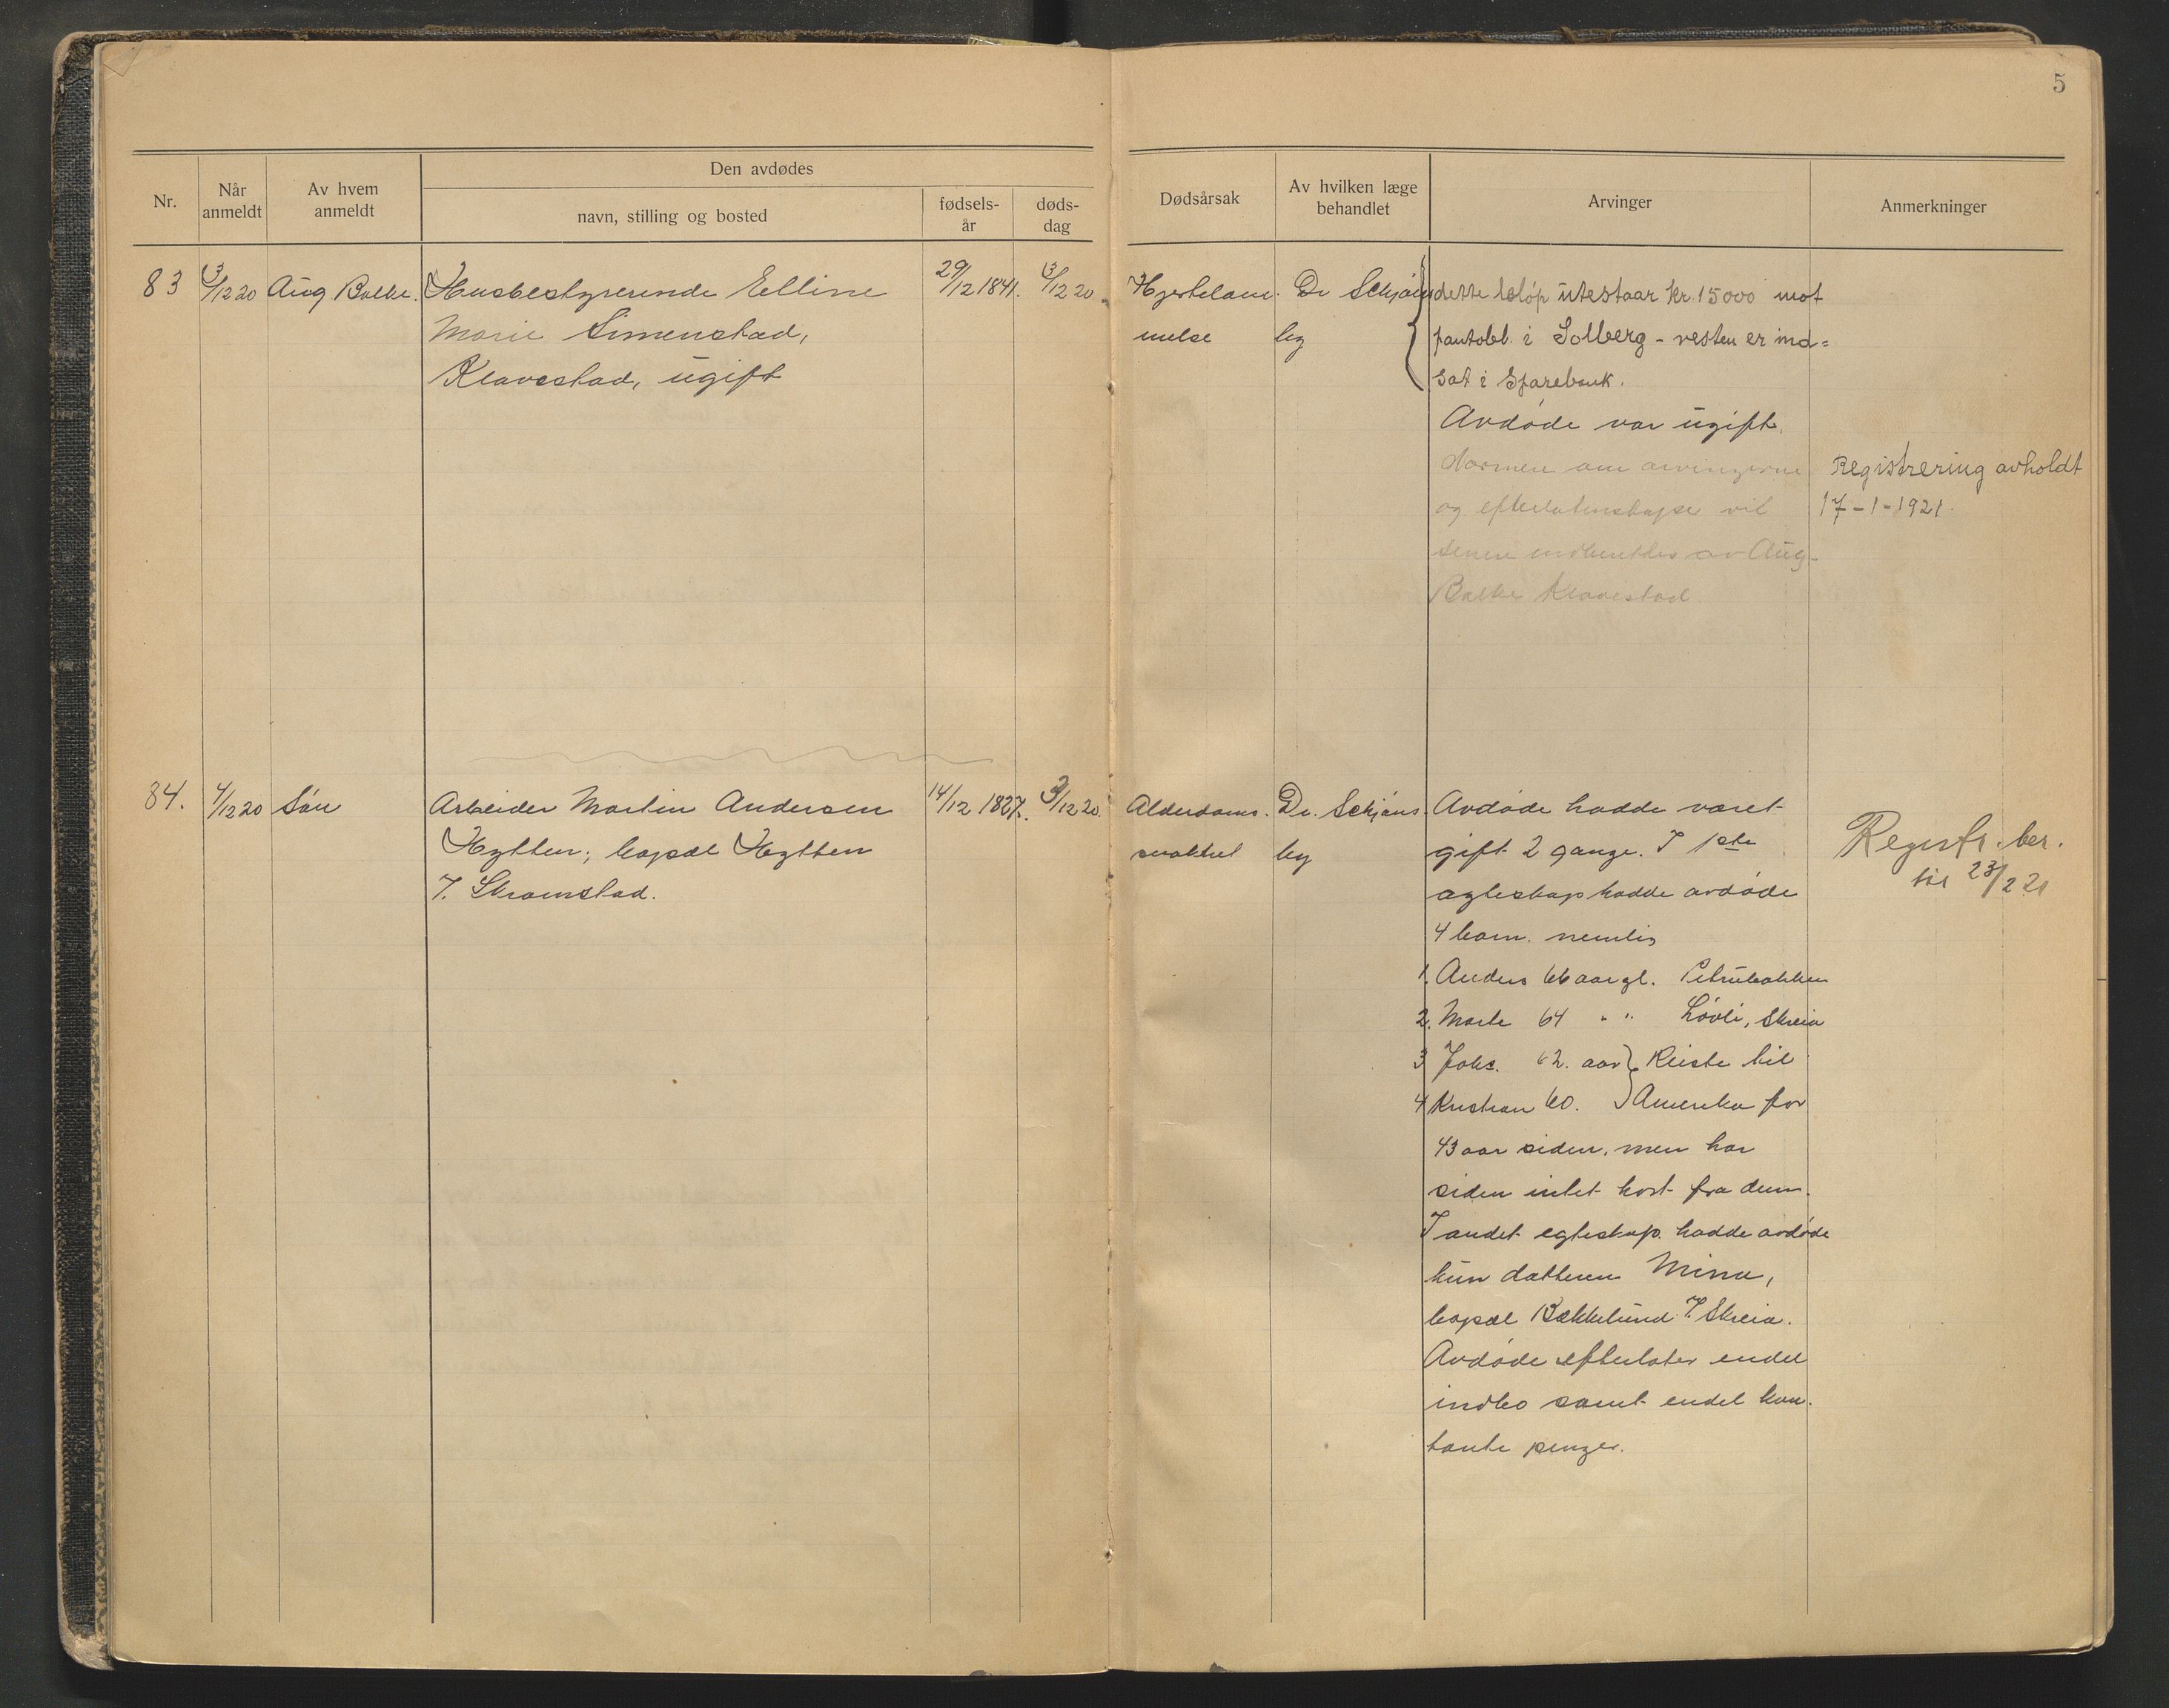 5
Den avdødes
Nr.
Når anmeldt
Av hvem anmeldt
navn, stilling og bosted
fødsels-år
døds-dag
Dødsårsak
Av hvilken læge behandlet
Arvinger
Anmerkninger
83 3/12 20 Aug Balke. Husbestyrerinde Elline 29/12 1841. 3/12 20
Marie Simenstad,
Klavestad, ugift
Hjertelam-
melse
Dr Schjøns
by
dette beløp utestaar kr. 15000 mot
pantobl. i Solberg - resten er ind=
sat i Sparebank.
Avdøde var ugift.
Navnene om arvingerne
og efterlatenskaper vil
senere indberettes av Aug.
Balke Klavestad
Registrering avholdt
17-1-1921.
84. 4/12 20 Søn Arbeider Martin Andersen 14/12 1837. 3/12 20.
Hytten, bopæl Hytten
7. Skramstad.
Alderdoms.
svakhet
Dr. Schjøns
by
Avdøde hadde været
gift 2 gange. I 1ste
egteskap hadde avdøde
4 barn. nemlig
1. Anders 66 aar gl. Petrubakken
2. Marte 64 " " Løvli, Skreia
3 Johs. 62. aar } Reiste til
4 Kristian 60. } Amerika for
43 aar siden, men har
siden intet hørt fra dem.
I andet egteskap hadde avdøde
kun datteren Mina,
bopæl Bækkelund 7. Skreia.
Avdøde efterlater endel
indbo samt endel kon-
tante penger.
Registr. ber.
til 23/2 21